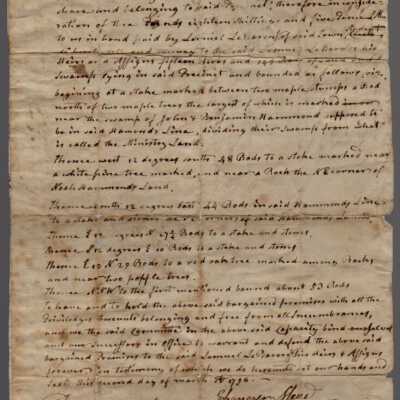 share and belonging to paid Pre nct; therefore in conside-
ration of Three Pounds eighteen Shillings and five Pence
to us in hand paid by Lemuel LeBarron of said Town,
and convey to the said Lemuel LeBarron his
Heirs and Assigns fifteen acres and
Swamp lying in said Precinct and bounded as follows, viz.
begining at a stake marked between two maple stumps a Rod
north of two maple trees the largest of which is marked
near the swamp of John & Benjamin Hammond supposed to
be in said Hamonds Line, dividing their Swamp from what
is called the Ministry Land.
Thence west 12 degrees south 48 Rods to a stake marked near
a white pine tree marked, and near a Rock the NE corner of
Noah Hammonds Land.
Thence south 12 degrees east 44 Rods in said Hammonds Line
to a stake and stones corner of said Hammonds Land
Thence E 12 degrees N 27½ Rods to a Stake and Stones,
thence S 12 degrees E 10 Rods to a Stake and Stones
Thence E 12 N 29 Rods to a red oak tree marked among Rocks
and near two popple trees.
Thence N W to the first mentioned bound about 53 Rods
To have and to hold the above said bargained premises with all the
Priviledges thereunto belonging and free from all Incumbrances,
and we the said Committee in the above said Capacity bind ourselves
and our Successors in Office to warrant and defend the above said
bargained Premises to the said Lemuel LeBarron his heirs & Assigns
forever in testimony of which we do hereunto set our hands and
seal this second day of march AD 1796